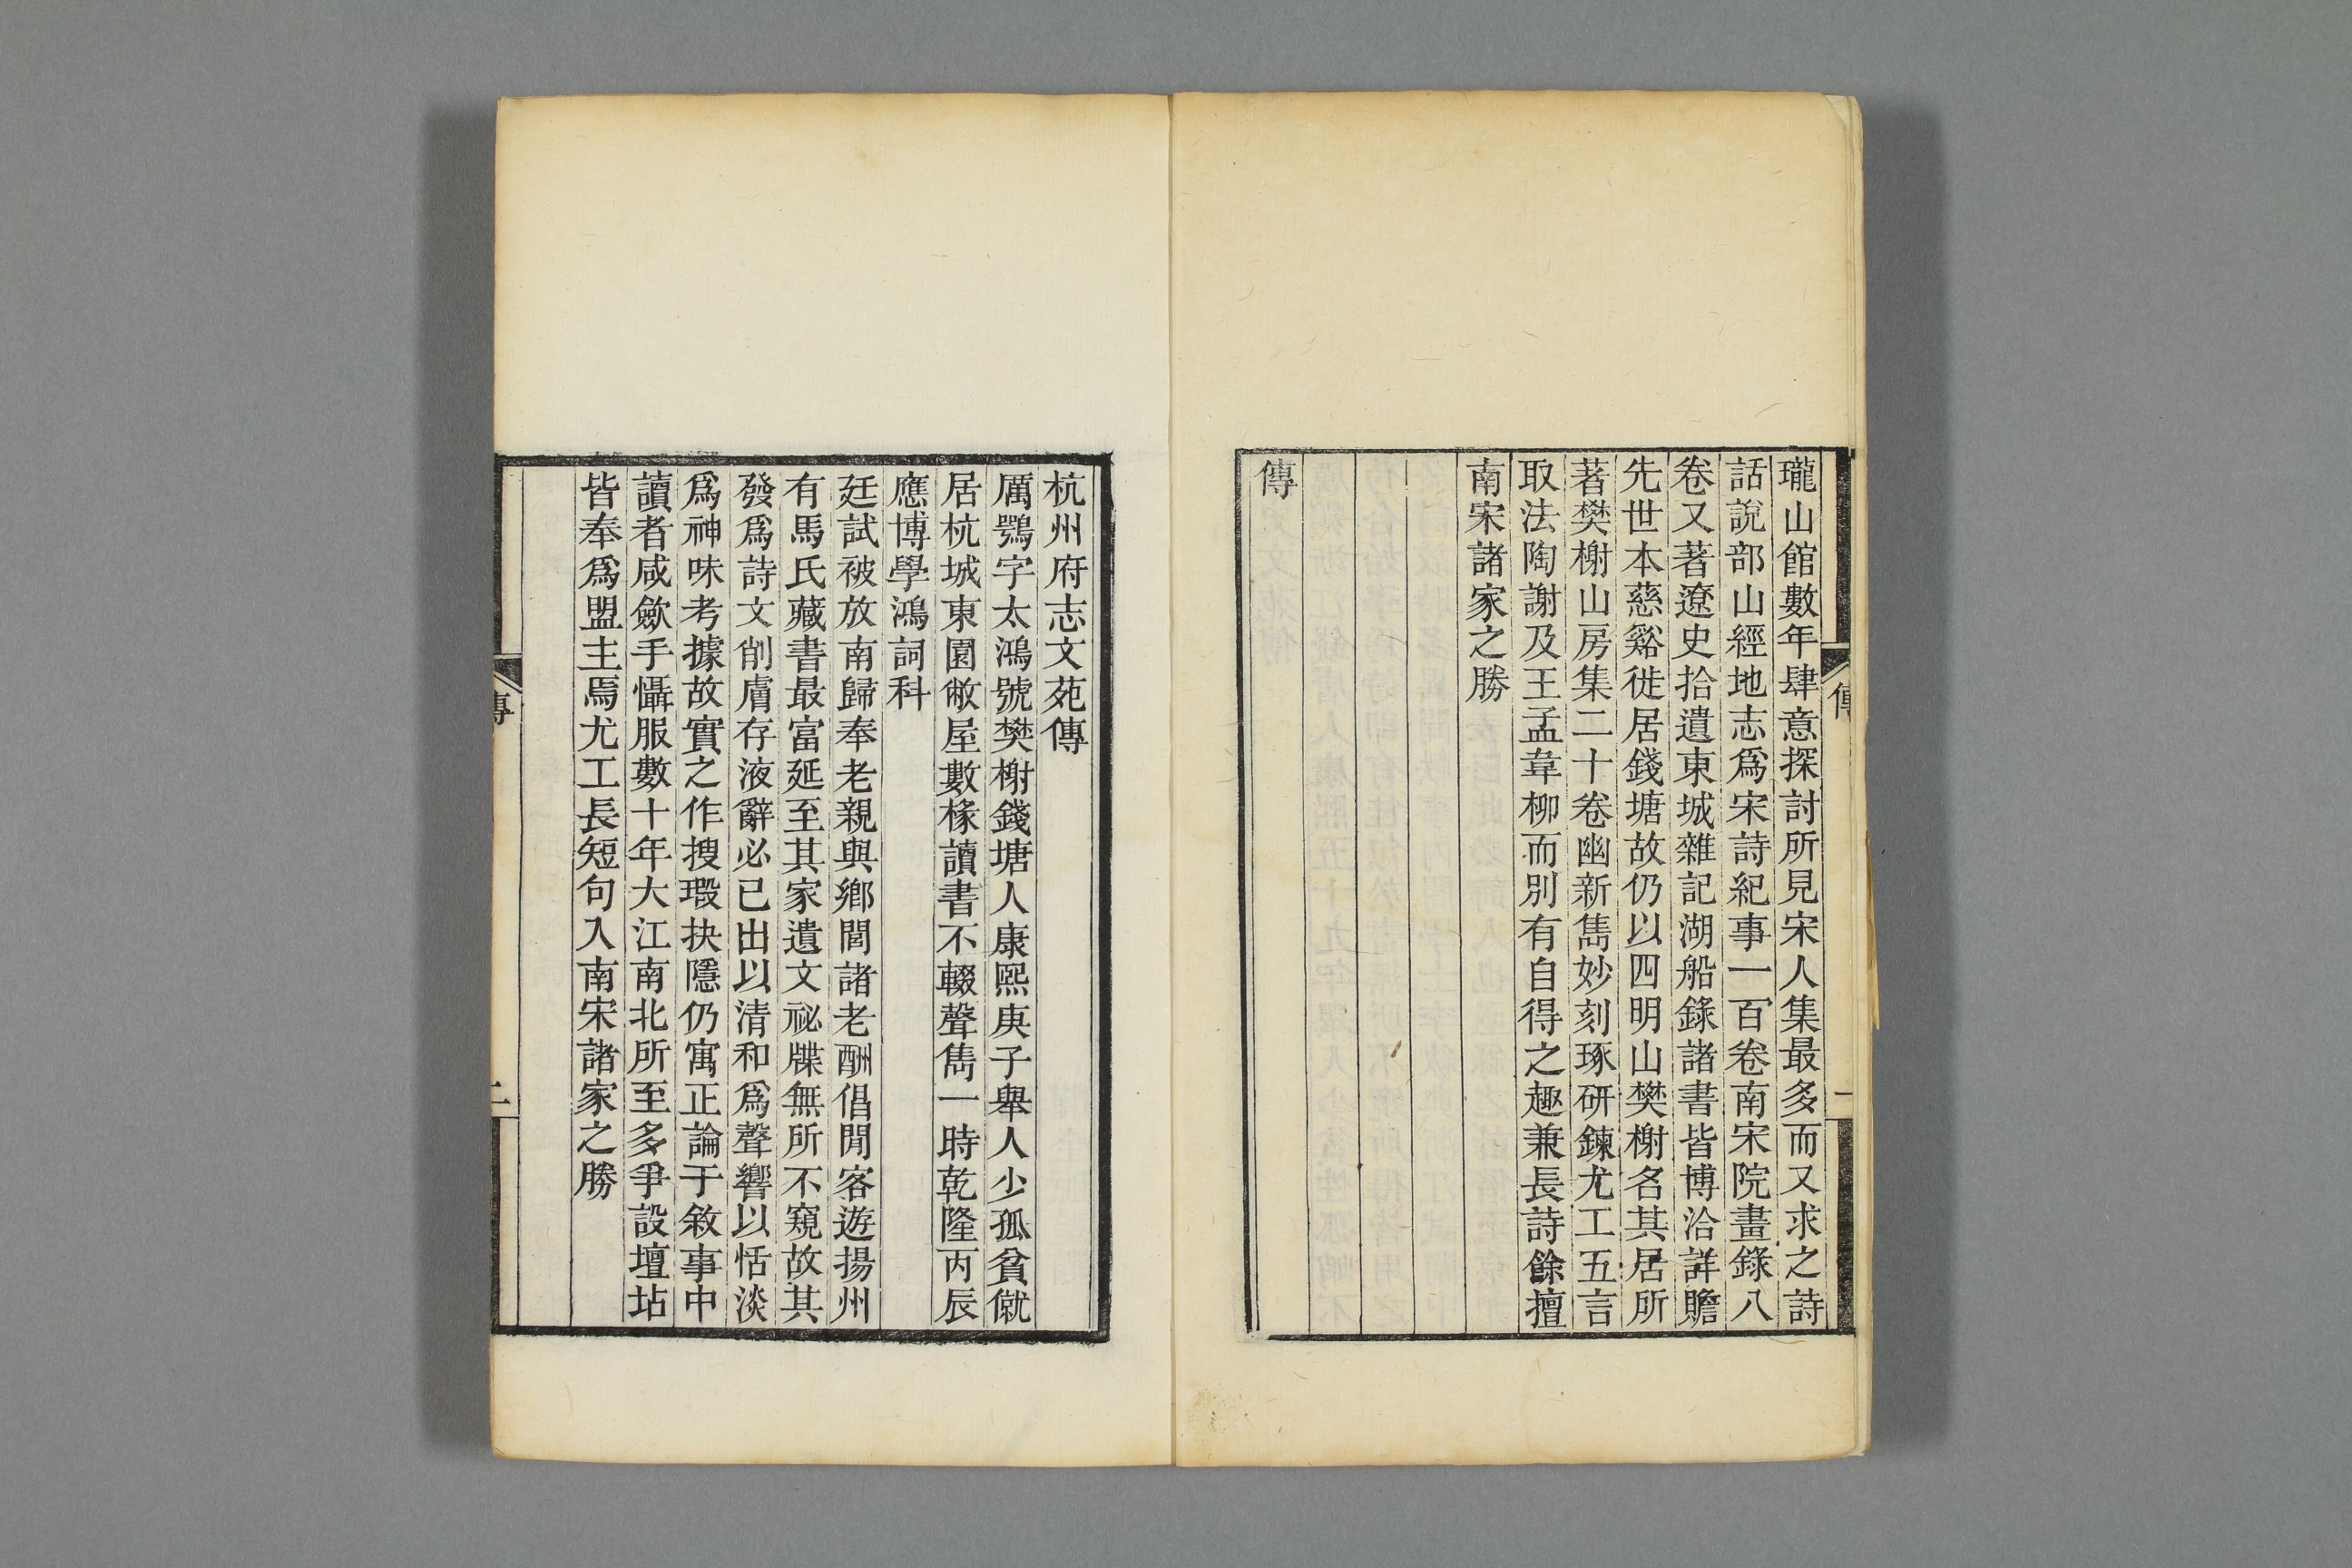 傳
一
瓏山館數年肆意探討所見宋人集最多而又求之詩
話說部山經地志爲宋詩紀事一百卷南宋院畫錄八
卷又著遼史拾遺東城雜記湖船錄諸書皆博洽詳贍
先世本慈谿徙居錢塘故仍以四明山樊榭名其居所
著樊榭山房集二十卷幽新雋妙刻琢研鍊尤工五言
取法陶謝及王孟韋柳而別有自得之趣兼長詩餘擅
南宋諸家之勝
傳
杭州府志文苑傳
厲鶚字太鴻號樊榭錢塘人康熙庚子舉人少孤貧僦
居杭城東園敝屋數椽讀書不輟聲雋一時乾隆丙辰
應博學鴻詞科
廷試被放南歸奉老親與鄉閭諸老酬倡閒客遊揚州
有馬氏藏書最富延至其家遺文祕牒無所不窺故其
發爲詩文削膚存液辭必已出以清和爲聲響以恬淡
爲神味考據故實之作搜瑕抉隱仍寓正論于敘事中
讀者咸歛手懾服數十年大江南北所至多爭設壇坫
皆奉爲盟主焉尤工長短句入南宋諸家之勝
傳
二